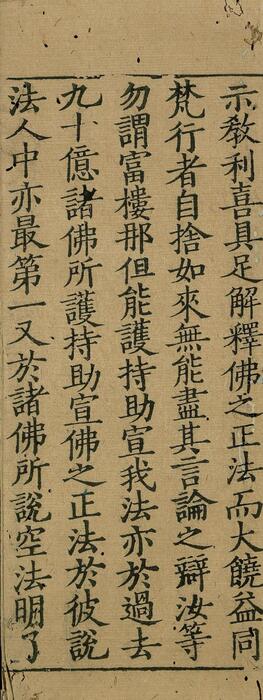 示敎利喜具足解釋佛之正法而大饒益同
梵行者自捨如來無能盡其言論之辯汝等
勿謂富樓那但能護持助宣我法亦於過去
九十億諸佛所護持助宣佛之正法於彼說
法人中亦最第一又於諸佛所說空法明了